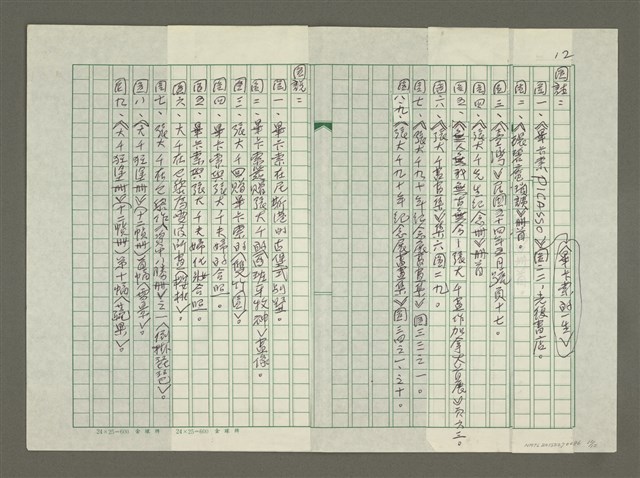 12
圖註：
圖一、《畢卡索PICASSO》圖二二，先後畫店。
《畢卡索的一生》
圖二、《張碧寒瑣談》冊首。
圖三、《臺灣》民國五十四年五月號頁十七。
圖四、《張大千先生紀念冊》冊首
圖五、張大千畫作加拿大首展》頁六三。
圖六、《張大千書畫集》集六圖二九。
圖七、《張大千九十年紀念展書畫集》圖三三之一。
八、九《張大千九十年紀念展書畫集》圖三四之一、之十。
圖說：
圖一、畢卡索在尼斯港的古堡式別墅。
圖二、畢卡索題贈張大千的《西班牙牧神》畫像。
圖三、張大千回贈畢卡索的《雙竹圖》。
圖四、畢卡索與張大千夫婦的合照。
圖五、畢卡索與張大千夫婦化妝合照。
圖六、大千在巴黎為雪波所畫《枇杷》。
圖七、張大千在巴黎作《四十八勝冊》之一《倚柳琵琶》。
圖八、《大千狂塗冊》（十二幀冊）首幅《雪景》。
圖九、《大千狂塗冊》（十二幀冊）第十幅《蔬果》。
24×25=600 24×25=600